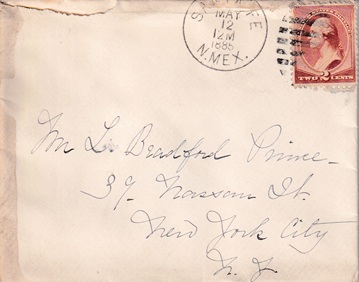 SANTA FE
MAY
12
12M
1885
N. MEX.
TWO 2 CENTS
Mr L. Bradford Prince
37 Nassau St.
New York City
N. Y